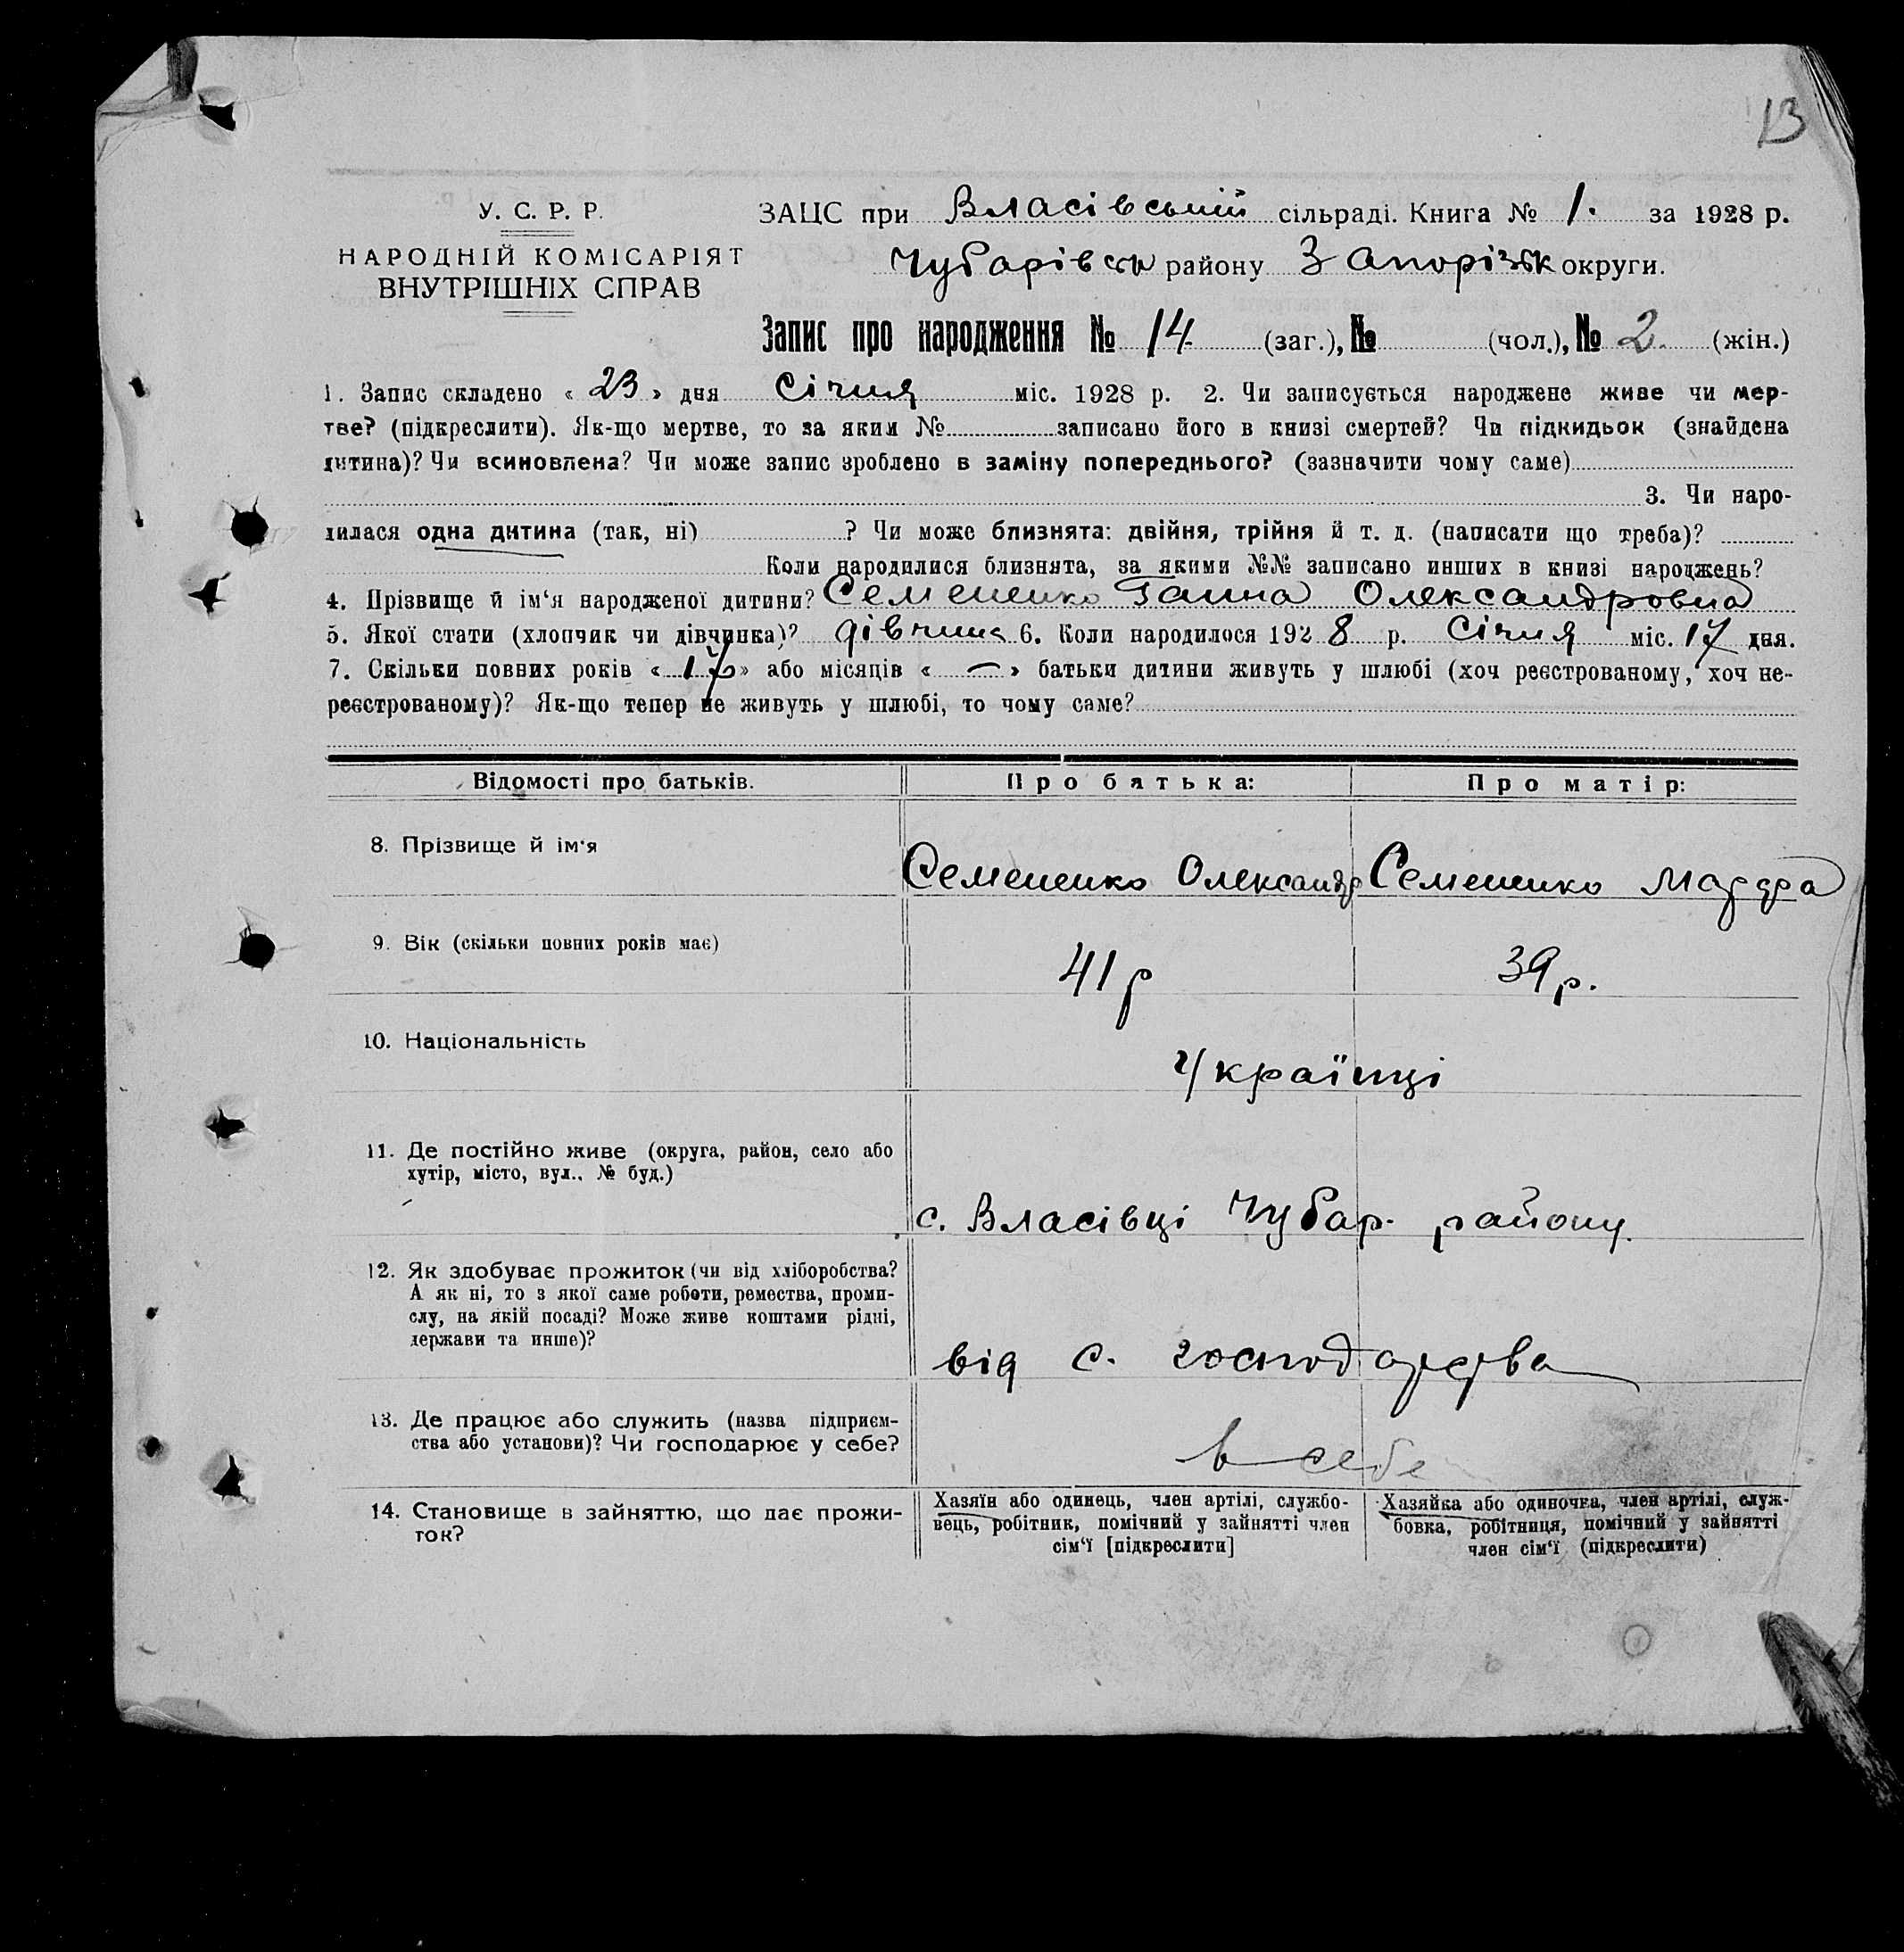 13
У. С. Р. Р.
НАРОДНІЙ КОМІСАРІЯТ
ВНУТРІШНІХ СПРАВ
ЗАЦС при Власівській сільраді. Книга № 1. за 1928 р.
Чубарівськ району Запорізьк округи.
Запис про народження № 14 (заг.), № (чол.), № 2. (жін.)
1. Запис складено « 23 » дня Січня міс. 1928 р. 2. Чи записується народжене живе чи мер-
тве? (підкреслити). Як-що мертве, то за яким № записано його в книзі смертей? Чи підкидьок (знайдена
дитина)? Чи всиновлена? Чи може запис зроблено в заміну попереднього? (зазначити чому саме)
3. Чи наро-
дилася одна дитина (так, ні) ? Чи може близнята: двійня, трійня й т. д. (написати що треба)?
Коли народилися близнята, за якими №№ записано инших в книзі народжень?
4. Прізвище й ім‘я народженої дитини? Семененко Ганна Олександровна
5. Якої стати (хлопчик чи дівчинка)? дівчина 6. Коли народилося 1928 р. Січня міс. 17 дня.
7. Скільки повних років « 17 » або місяців « — » батьки дитини живуть у шлюбі (хоч реєстрованому, хоч не-
реєстрованому)? Як-що тепер не живуть у шлюбі, то чому саме?
Відомості про батьків. Про батька: Про матір:
8. Прізвище й ім‘я Семененко Олександр Семененко Марфа
9. Вік (скільки повних років має) 41 р 39 р.
10. Національність Українці
11. Де постійно живе (округа, район, село або
хутір, місто, вул.. № буд.)
с. Власівці Чубар. району.
12. Як здобуває прожиток (чи від хліборобства?
А як ні, то з якої саме роботи, ремества, проми-
слу, на якій посаді? Може живе коштами рідні,
держави та инше)?
від с. господарства
13. Де працює або служить (назва підприєм-
ства або установи)? Чи господарює у себе?
в себе
14. Становище в зайняттю, що дає прожи-
ток?
Хазяїн або одинець, член артілі, службо-
вець, робітник, помічний у зайнятті член
сім‘ї [підкреслити]
Хазяйка або одиночка, член артілі, служ-
бовка, робітниця, помічний у зайнятті
член сім‘ї (підкреслити)